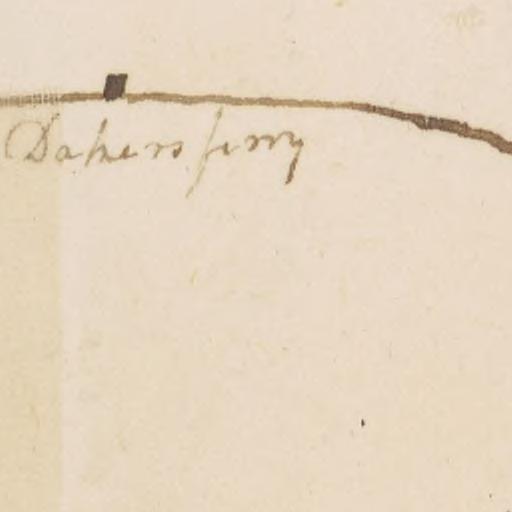 Dakers ferry